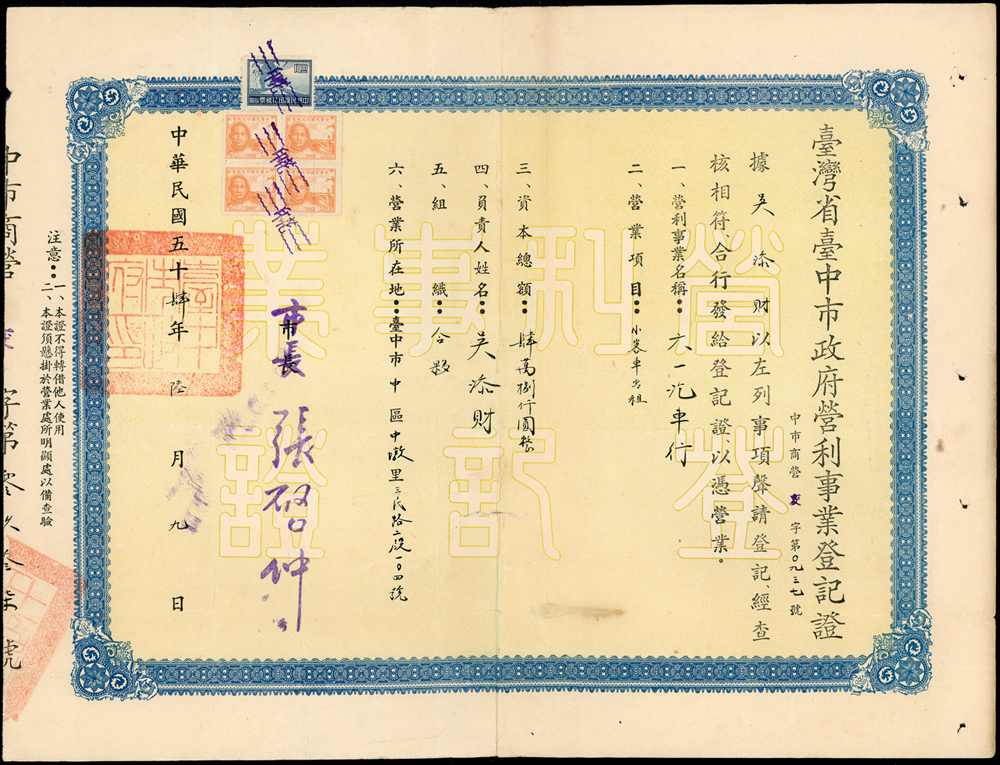 臺灣省臺中市政府營利事業登記證
中市商營 字第0九三七號
據吳添財以左列事項聲請登記、經查
核相符、合行發給登記證以憑營業。
一、營利事業名稱：六一汽車行
二、營業項目：小客車出租
三、資本總額：肆萬捌仟圓整
四、負責人姓名：吳添財
五、組織：合夥
六、營業所在地：臺中市中區中墩里三民路二段一0四號
市長 張啓仲
中華民國五十肆年陸月九日
注意：一、本證不得轉借他人使用
二、本證須懸掛於營業處所明顯處以備查驗
中市商營 字第零玖叁柒號
營利事業
登記證
10.00